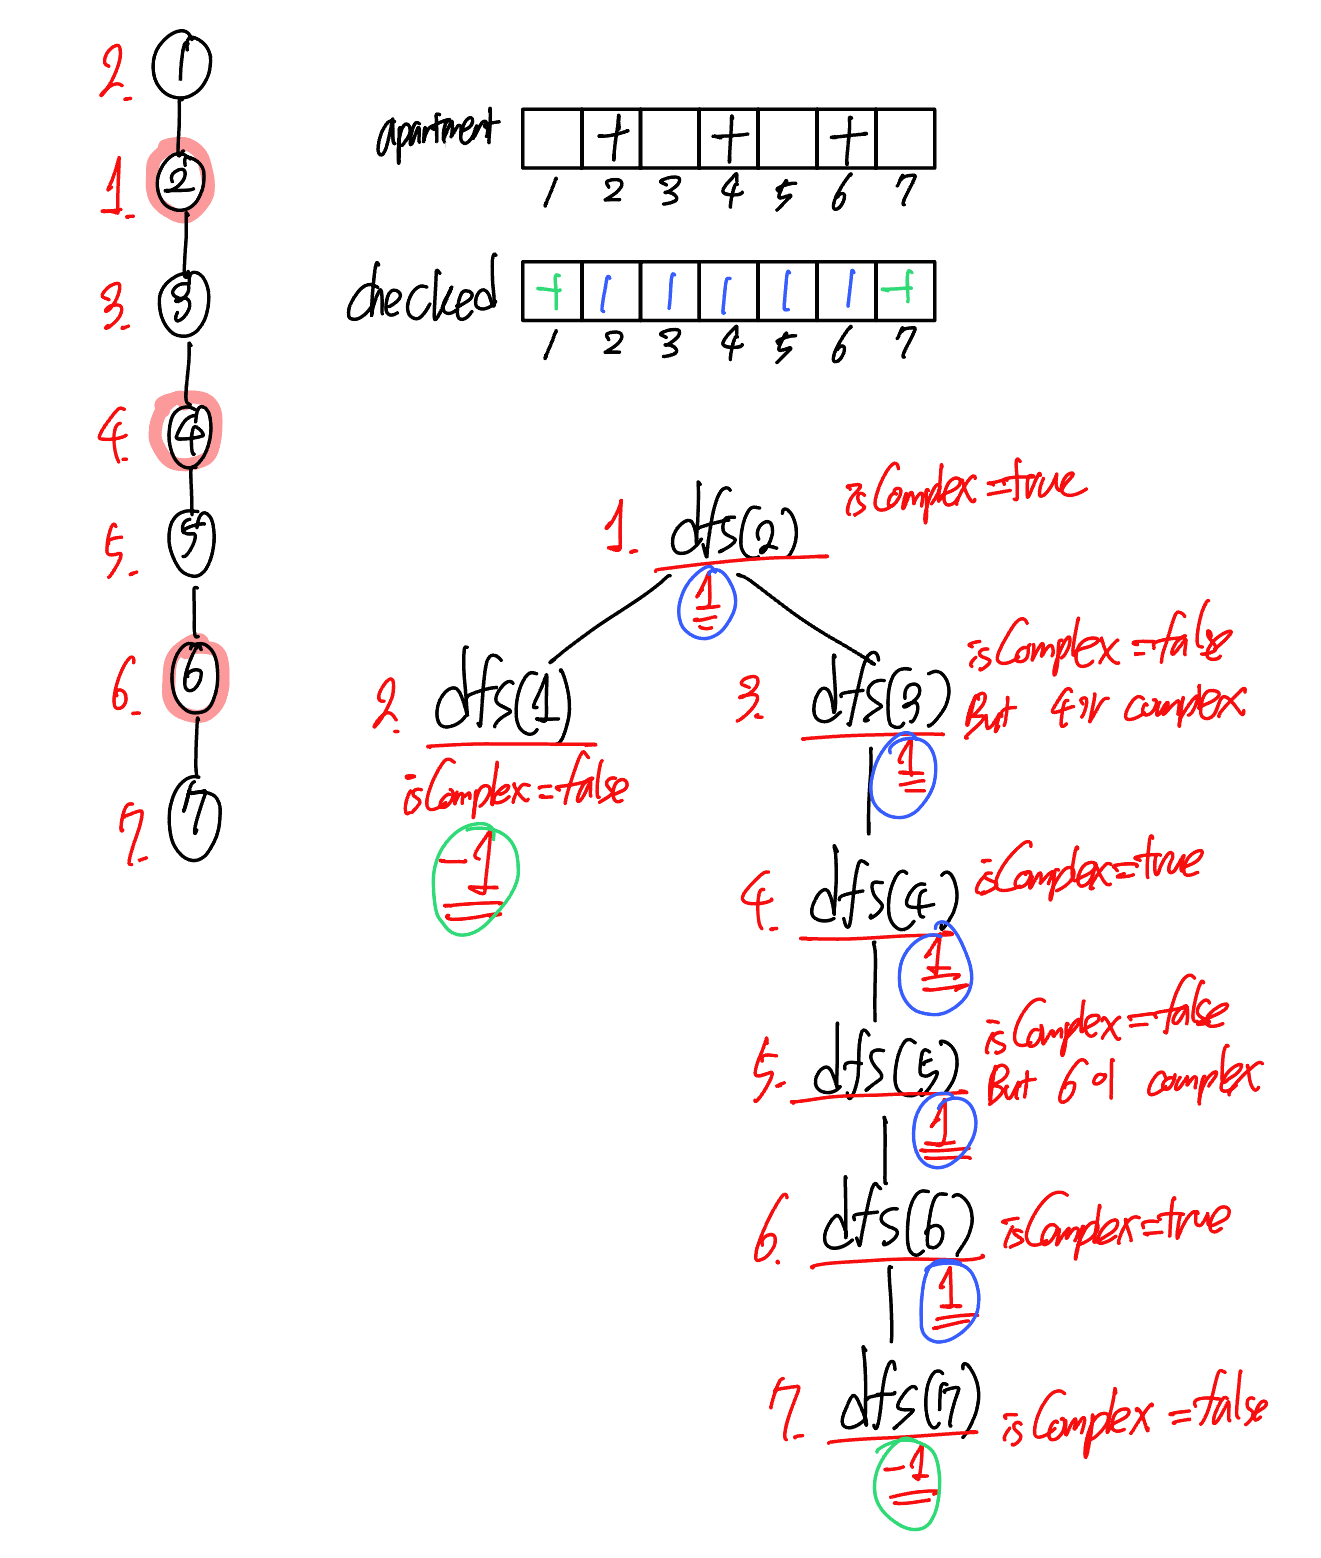 2. 1
1. 2
3. 3
4. 4
5. 5
6. 6
7. 7
apartment + + +
1 2 3 4 5 6 7
checked + 1 1 1 1 1 +
1 2 3 4 5 6 7
1. dfs(2) isComplex=true
1
2. dfs(1)
isComplex=false
-1
3. dfs(3) isComplex=false
But 4가 complex
1
4. dfs(4) isComplex=true
1
5. dfs(5) isComplex=false
But 6이 complex
1
6. dfs(6) isComplex=true
1
7. dfs(7) isComplex=false
-1